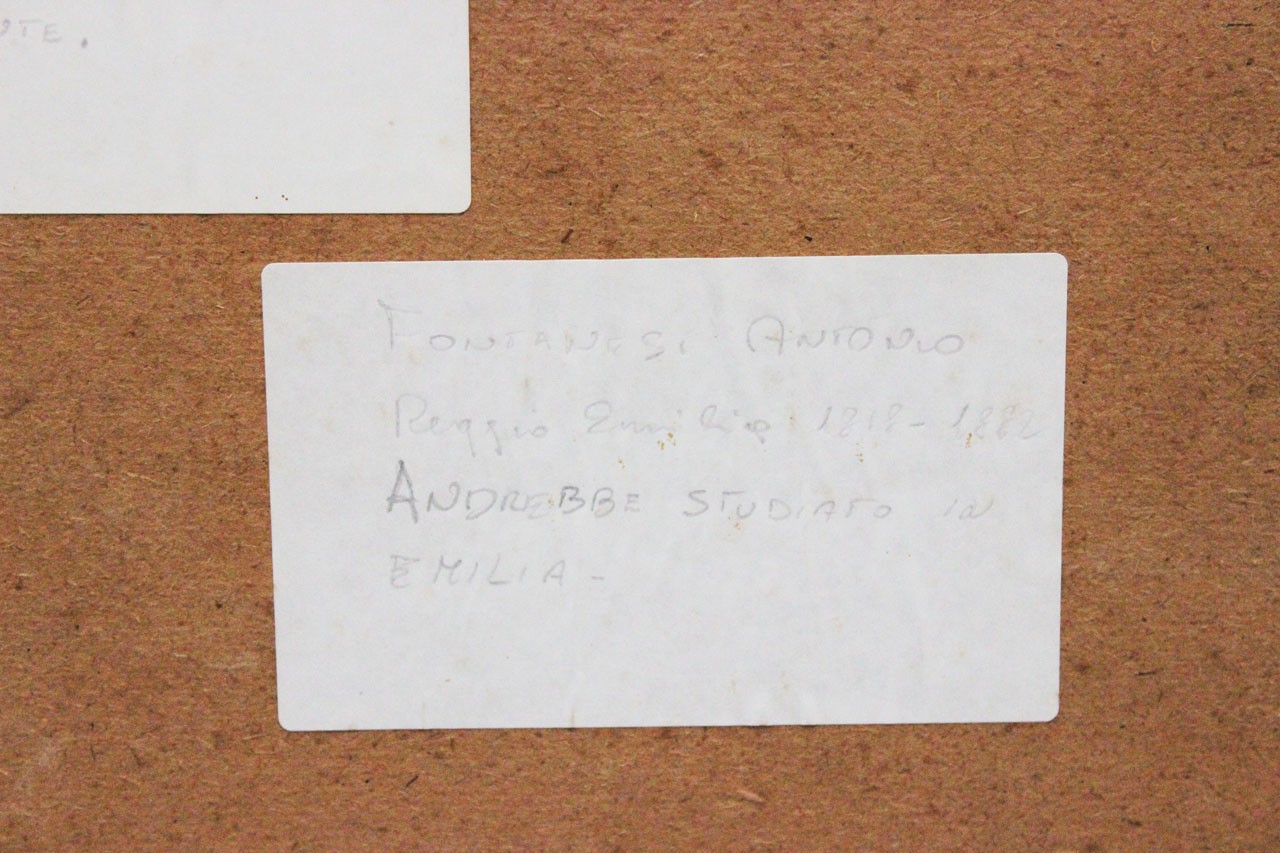 Fontanesi Antonio
Reggio Emilia 1818-1882
ANDREBBE STUDIATO IN
EMILIA-